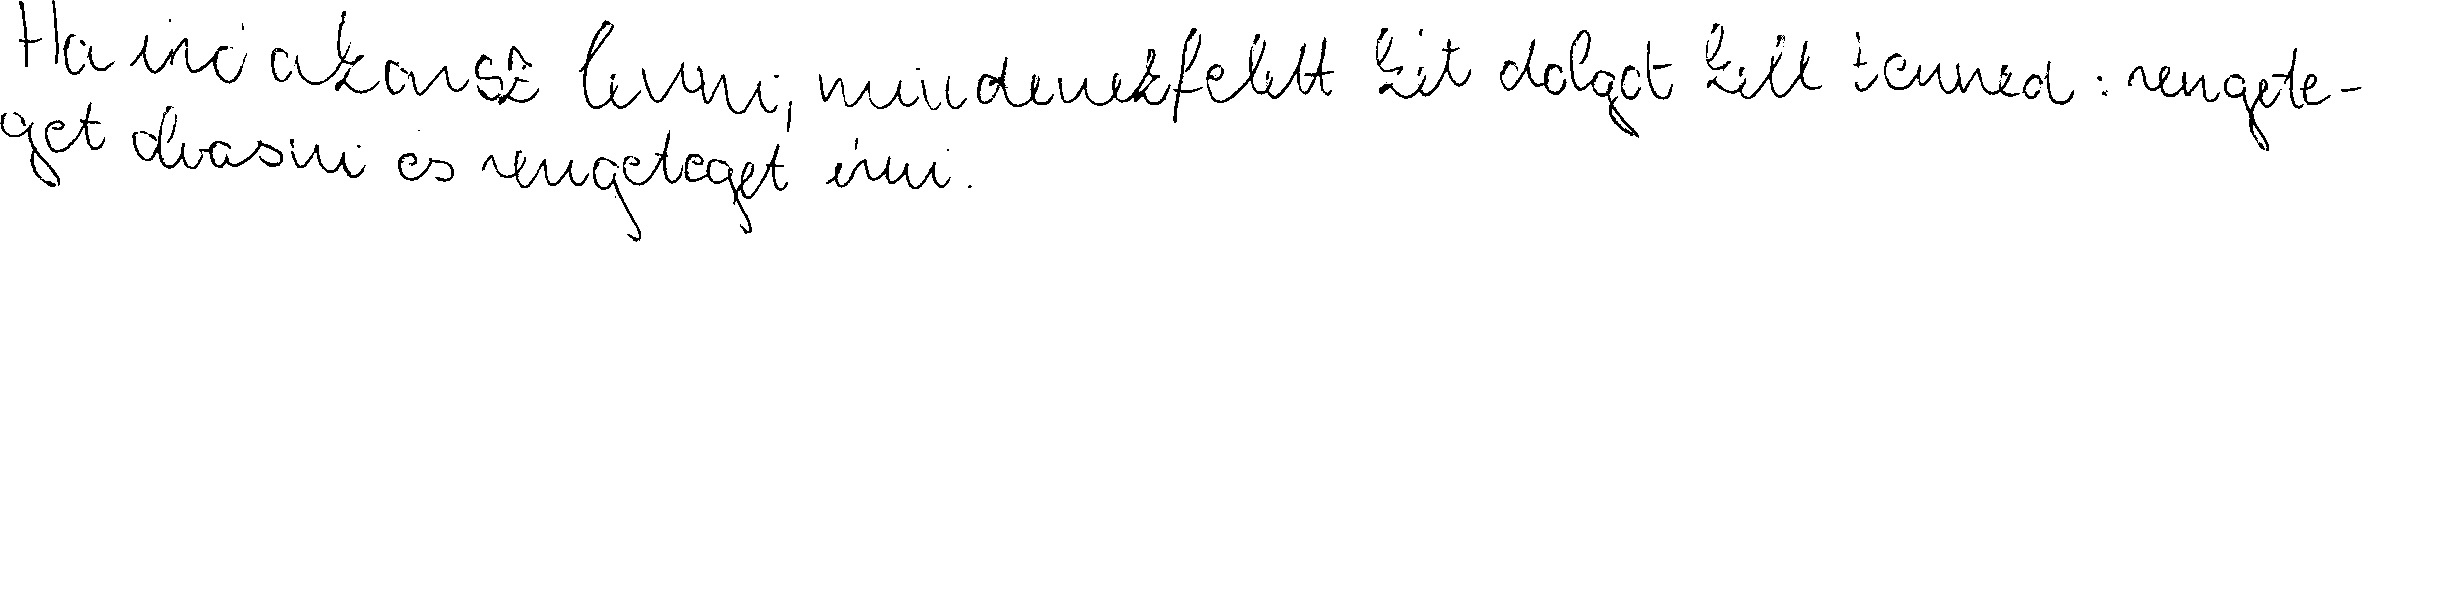 Ha író akarsz lenni, mindenekfelett két dolgot kell tenned: rengete-
get olvasni és rengeteget írni.